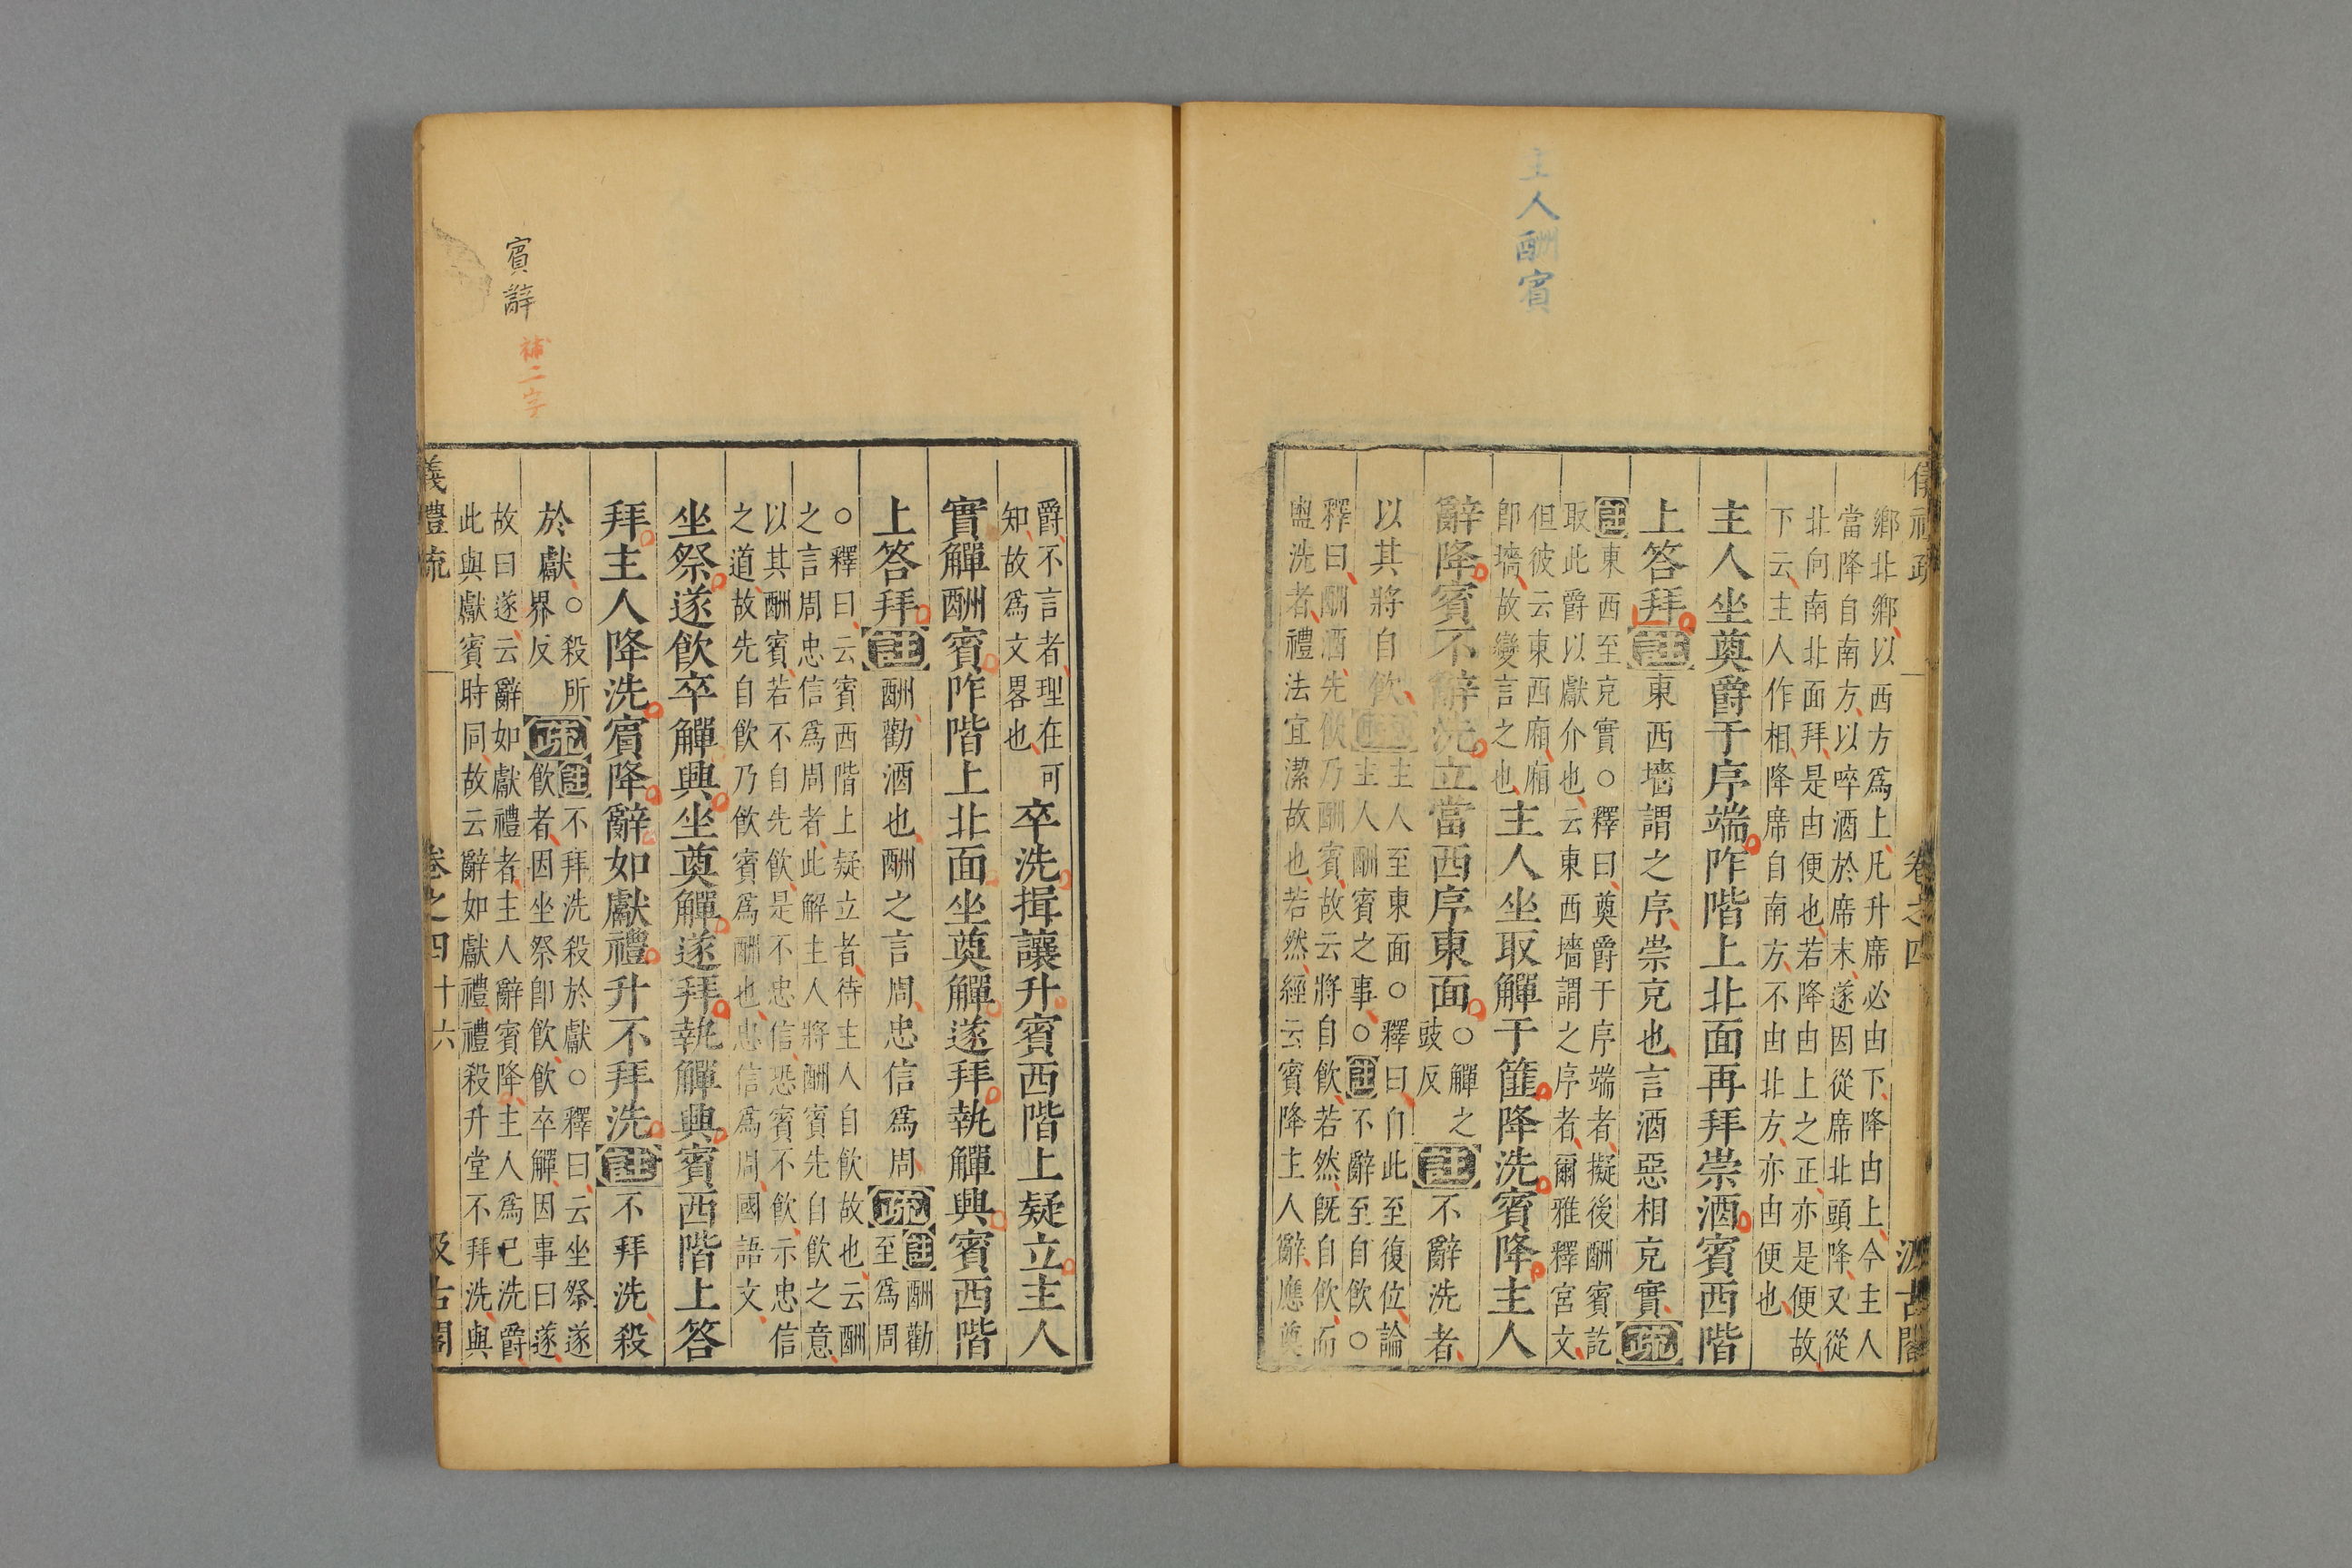 主人酬賓
鄉北鄉以西方爲上凡升席必由下降由上今主人
當降自南方以啐酒於席末遂因從席北頭降又從
北向南北面拜是由便也若降由上之正亦是便故
下云主人作相降席自南方不由北方亦由便也
主人坐奠爵于序端阼階上北面再拜崇酒賓西階
上答拜註東西墻謂之序崇充也言酒惡相充實疏
註東西至充實○釋曰奠爵于序端者擬後酬賓訖
取此爵以獻介也云東西墻謂之序者爾雅釋宮文
但彼云東西廂廂
卽墻故變言之也主人坐取觶于篚降洗賓降主人
辭降賓不辭洗立當西序東面○觶之豉反註不辭洗者
以其將自飮疏主人至東面○釋曰自此至復位論
主人酬賓之事○註不辭至自飮○
釋曰酬酒先飮乃酬賓故云將自飮若然旣自飮而
盥洗者禮法宜潔故也若然經云賓降主人辭應奠
爵不言者理在可
知故爲文畧也卒洗揖讓升賓西階上疑立主人
實觶酬賓阼階上北面坐奠觶遂拜執觶興賓西階
上答拜註酬勸酒也酬之言周忠信爲周疏註酬勸
至爲周
○釋曰云賓西階上疑立者待主人自飮故也云酬
之言周忠信爲周者此解主人將酬賓先自飮之意
以其酬賓若不自先飮是不忠信恐賓不飮示忠信
之道故先自飮乃飮賓爲酬也忠信爲周國語文
坐祭遂飮卒觶興坐奠觶遂拜執觶興賓西階上答
拜主人降洗賓降辭如獻禮升不拜洗註不拜洗殺
於獻○殺所界反疏註不拜洗殺於獻○釋曰云坐祭遂
飮者因坐祭卽飮飮卒觶因事曰遂
故曰遂云辭如獻禮者主人辭賓降主人爲已洗爵
此與獻賓時同故云辭如獻禮禮殺升堂不拜洗與
儀禮疏 卷之四十六 汲古閣
賓辭
補二字